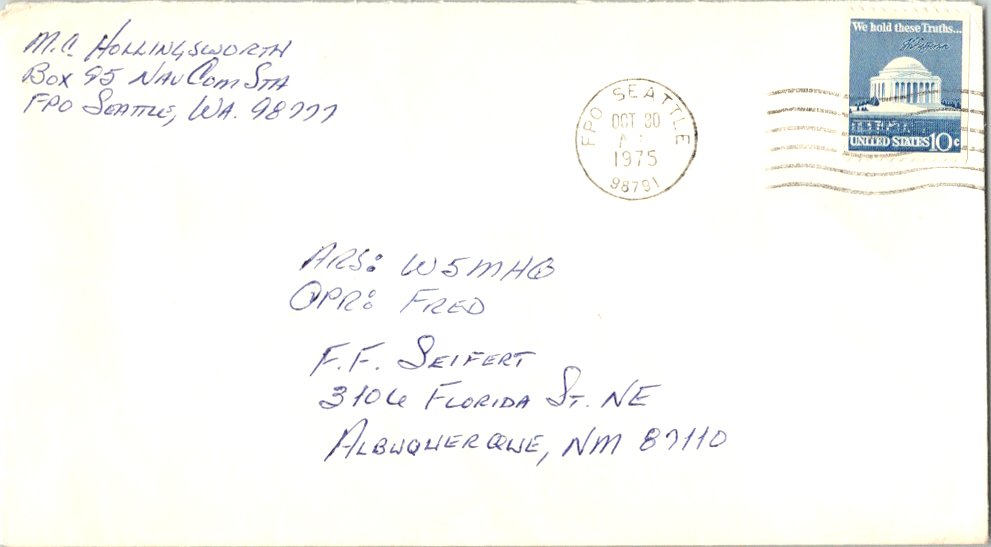 M.C. HOLLINGSWORTH
BOX 95 NAVCOMSTA
FPO SEATTLE, WA. 98777
FPO SEATTLE
OCT 30
1975
98791
We hold these Truths...
UNITED STATES 10c
ARS: W5MHQ
OPR: FRED
F.F. SEIFERT
3106 FLORIDA ST. NE
ALBUQUERQUE, NM 87110